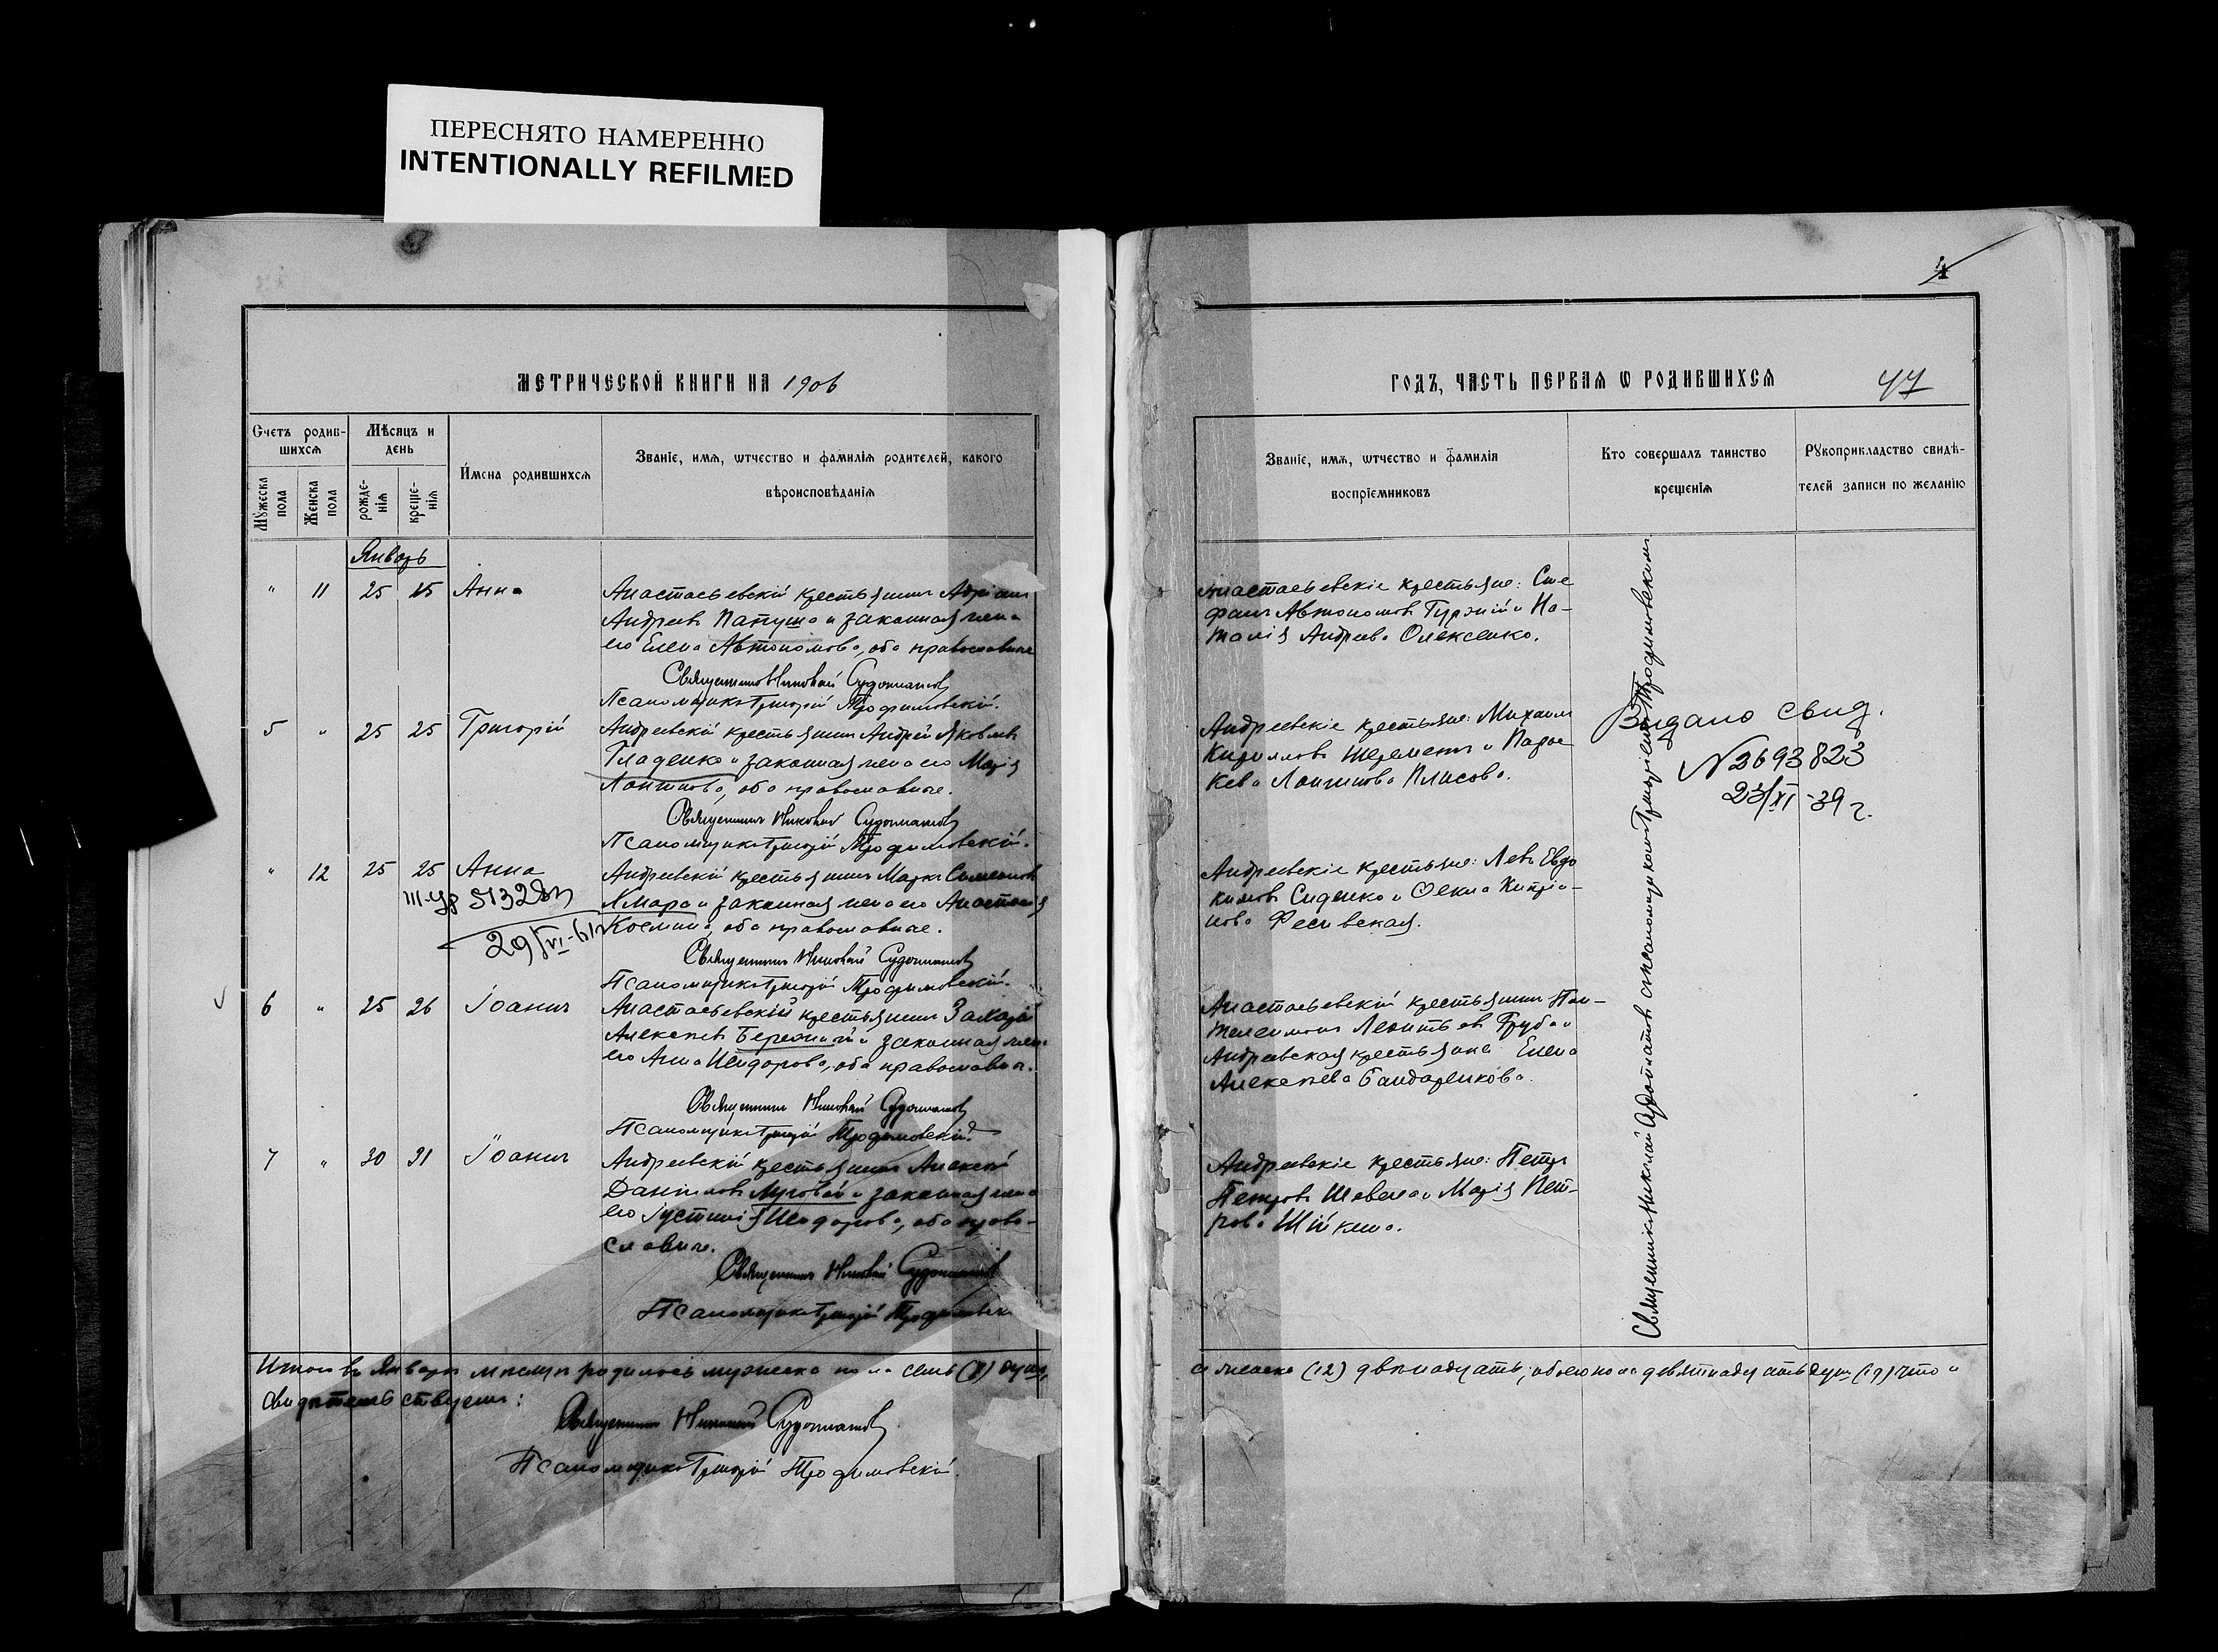 ПЕРЕСНЯТО НАМЕРЕННО
INTENTIONALLY REFILMED
МЕТРИЧЕСКОЙ КНИГИ НА 1906
Счетъ родив-
шихся
Мѣсяцъ и
день
Имена родившихся
Званіе, имя, ѡтчество и фамилія родителей, какого
вѣроисповѣданія
Мужеска
пола
Женска
пола
рожде-
нія
креще-
нія
Январь
" 11 25 25 Анна
Анастасьевскій крестьянинъ Адріанъ
Андреевъ Папуша и законная жена
его Елена Автономова, оба православные
Священникъ Николай
Псаломщикъ Григорій Трофимовскій.
5 " 25 25 Григорій
Андреевскій крестьянинъ Андрей Яковлевъ
Гладенко и законная жена его Марія
Логинова, оба православные.
Священникъ Николай
Псаломщикъ Григорій Трофимовскій.
" 12 25 25 Анна
Андреевскій крестьянинъ Марко Симеоновъ
Хмара и законная жена его Анастасія
Космина, оба православные.
29/VI-61г
Священникъ Николай
Псаломщикъ Григорій Трофимовскій.
6 " 25 26 Іоаннъ
Анастасьевскій крестьянинъ Захарій
Алексеевъ Бережный и законная жена
его Анна Исидорова, оба православные.
Священникъ Николай
Псаломщикъ Григорій Трофимовскій
7 " 30 31 Іоаннъ
Андреевскій крестьянинъ Алексей
Даніиловъ Луговой и законная жена
его Іустинія Исидорова, оба право-
славные.
Священникъ Николай
Псаломщикъ Григорій Трофимовскій
Итого въ Январѣ месяцѣ родилось мужеска пола семь (7) душъ,
свидетельствуемъ:
Священникъ Николай
Псаломщикъ Григорій Трофимовскій.
4
ГОДЪ, ЧАСТЬ ПЕРВАЯ Ѡ РОДИВШИХСЯ
47
Званіе, имя, ѡтчество и фамилія
воспріемниковъ
Кто совершалъ таинство
крещенія
Рукоприкладство свидѣ-
телей записи по желанію
Анастасьевскіе крестьяне: Сте
фанъ Автономовъ Гуржій и На-
талія Андреева Олексенко.
Андреевскіе крестьяне: Михаилъ
Кирилловъ Шереметъ и Парас
кева Логинова Плисова.
Видано свид.
№2693823
23/XI-39 г.
Андреевскіе крестьяне: Левъ Евдо
кимовъ Сиденко и Ѳекла Кипріа-
нова Фесивская.
Анастасьевскій крестьянинъ Пан-
телеимонъ Леонтьевъ Труба и
Андреевская крестьянка Елена
Алексеева Бандаренкова.
Андреевскіе крестьяне: Петръ
Петровъ и Марія Пет-
рова
Священникъ Николай съ псаломщикомъ Григоріемъ Трофимовскимъ
а женска (12) двенадцать, обоего пола девятнадцать душъ (19) что и